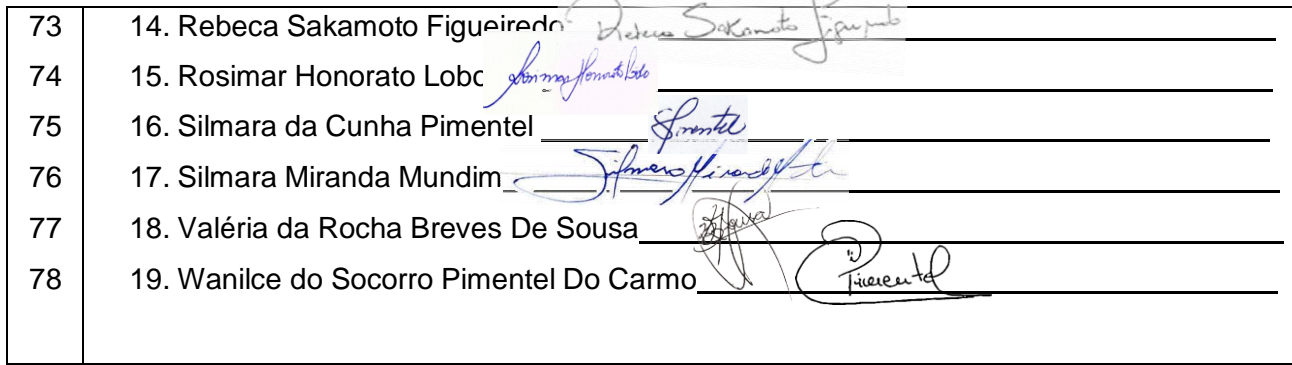 73 14. Rebeca Sakamoto Figueiredo Rebeca Sakamoto Figueiredo
74 15. Rosimar Honorato Lobo Rosimar Honorato Lobo
75 16. Silmara da Cunha Pimentel Pimentel
76 17. Silmara Miranda Mundim Silmara Miranda
77 18. Valéria da Rocha Breves De Sousa Sousa
78 19. Wanilce do Socorro Pimentel Do Carmo Pimentel